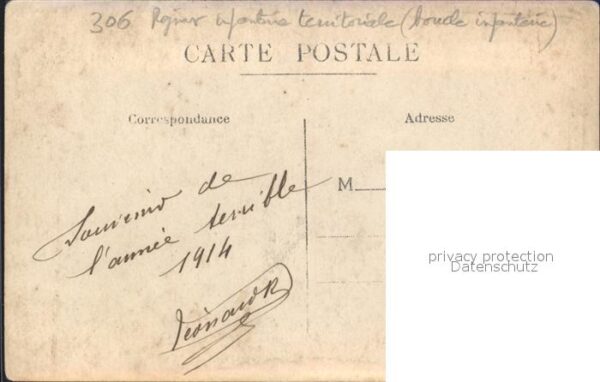 306 Regim infanterie territoriale (boucle infanterie)
CARTE POSTALE
Correspondance
Adresse
Souvenir de
l'année terrible
1914
M
privacy protection
Datenschutz